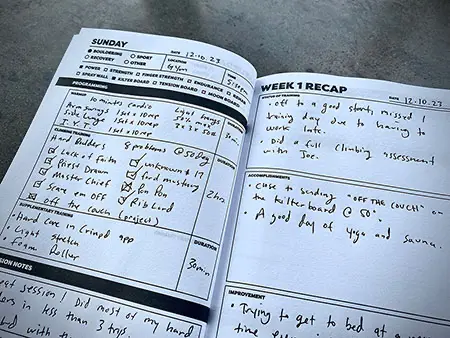 SUNDAY
BOULDERING
SPORT
RECOVERY
OTHER
DATE 12.10.23
LOCATION
Gym
TIME
POWER STRENGTH FINGER STRENGTH ENDURANCE
SPRAY WALL KILTER BOARD TENSION BOARD MOON BOARD
PROGRAMMING
10 minutes cardio
Arm swings 1set x 10 rep
Side lunges 1set x 10 rep
1set x 10 rep
30min
CLIMBING TRAINING
DURATION
Hard Boulders 8 problems @ 50 deg
Lack of Faith
unknown # 17
Pipes Dream
first mustang
Master Chief
Pan Pan
Scare em OFF
Rib Card
off the couch (project)
2hrs
SUPPLEMENTARY TRAINING
DURATION
Hard Core in Crimpd app
Light stretch
Foam Roller
30min
SESSION NOTES
session! Did most of my hard
in less than 3 trips
with the
WEEK 1 RECAP
STATUS OF TRAINING
DATE 12.10.23
• off to a good start, missed 1
training day due to having to
work late.
• Did a full climbing assessment
with Joe.
ACCOMPLISHMENTS
• Close to sending "OFF THE COUCH" on
the kilterboard @ 50°.
• A good day of yoga and sauna.
IMPROVEMENT
• Trying to get to bed at a
time